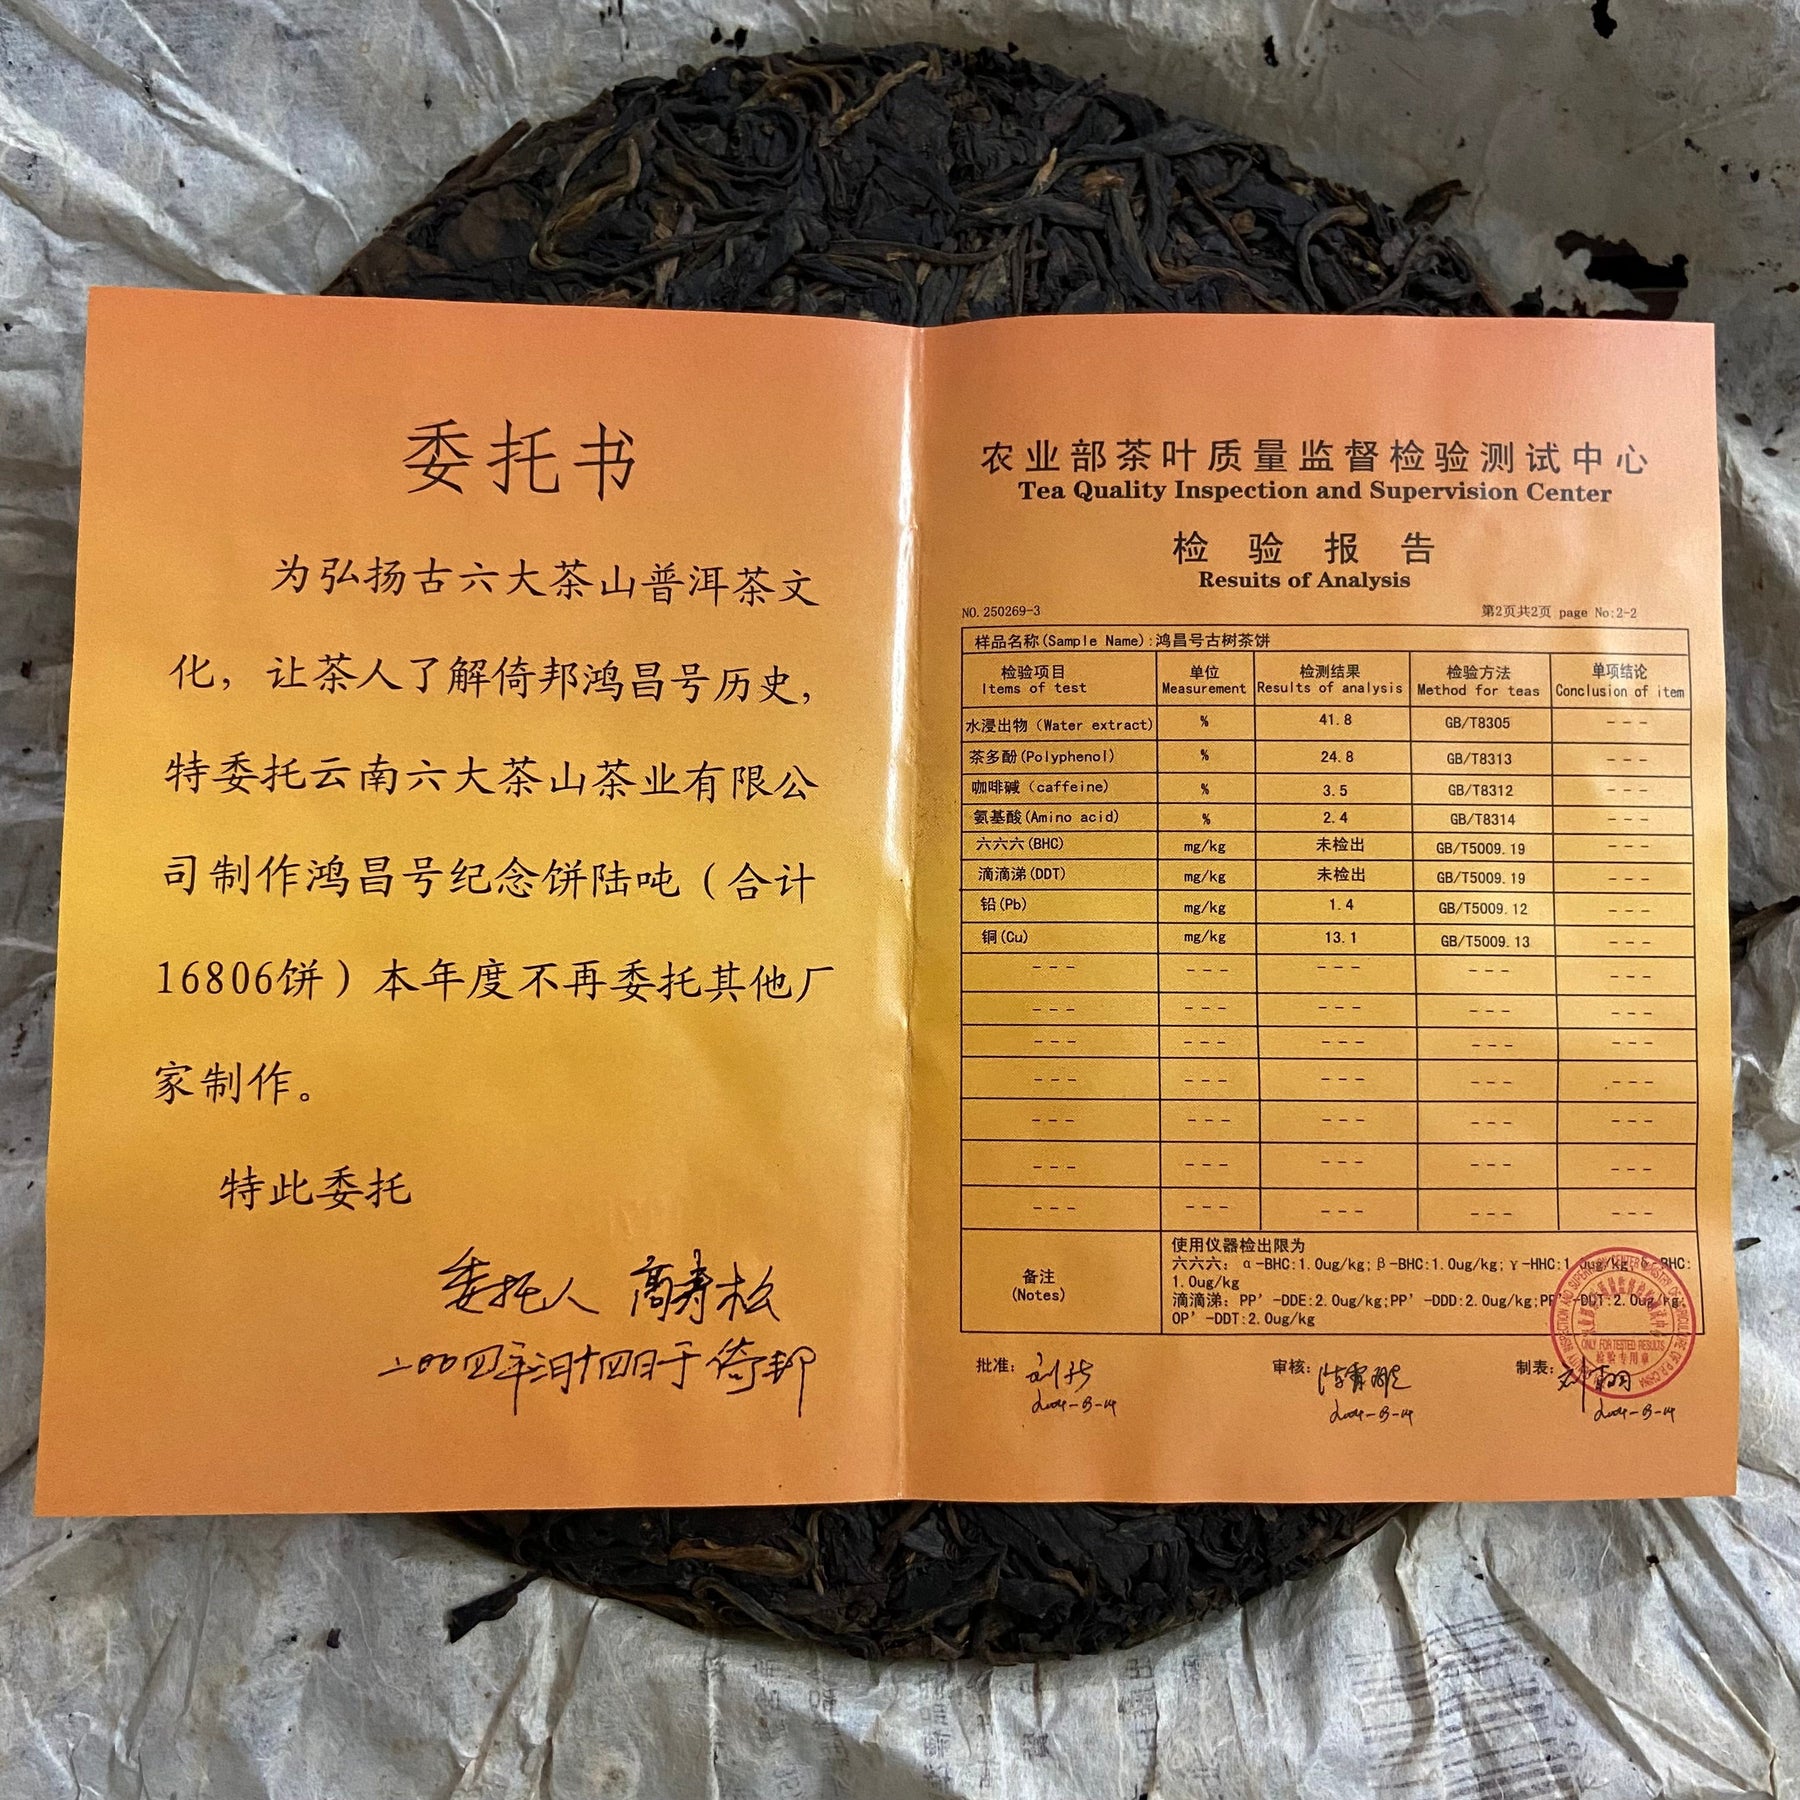 委托书
为弘扬古六大茶山普洱茶文
化，让茶人了解倚邦鸿昌号历史，
特委托云南六大茶山茶业有限公
司制作鸿昌号纪念饼陆吨（合计
16806饼）本年度不再委托其他厂
家制作。
特此委托
委托人 高寿松
二00四年三月十四日于倚邦
农业部茶叶质量监督检验测试中心
Tea Quality Inspection and Supervision Center
检 验 报 告
Resuits of Analysis
NO.250269-3 第2页共2页 page No:2-2
样品名称(Sample Name):鸿昌号古树茶饼
检验项目 单位 检测结果 检验方法 单项结论
Items of test Measurement Results of analysis Method for teas Conclusion of item
水浸出物（Water extract） % 41.8 GB/T8305 ---
茶多酚(Polyphenol) % 24.8 GB/T8313 ---
咖啡碱（caffeine) % 3.5 GB/T8312 ---
氨基酸(Amino acid) % 2.4 GB/T8314 ---
六六六(BHC) mg/kg 未检出 GB/T5009.19 ---
滴滴涕(DDT) mg/kg 未检出 GB/T5009.19 ---
铅(Pb) mg/kg 1.4 GB/T5009.12 ---
铜(Cu) mg/kg 13.1 GB/T5009.13 ---
--- --- --- --- ---
--- --- --- --- ---
--- --- --- --- ---
--- --- --- --- ---
--- --- --- --- ---
--- --- --- --- ---
--- --- --- --- ---
备注
(Notes)
使用仪器检出限为
六六六: α-BHC:1.0ug/kg;β-BHC:1.0ug/kg;γ-HHC:1.0ug/kg;δ-BHC:
1.0ug/kg
滴滴涕: PP'-DDE:2.0ug/kg;PP'-DDD:2.0ug/kg;PP'-DDT:2.0ug/kg
OP'-DDT:2.0ug/kg
ONLY FOR TESTED RESULTS
检验专用章
批准: 审核: 制表:
2004-3-14 2004-3-14 2004-3-14